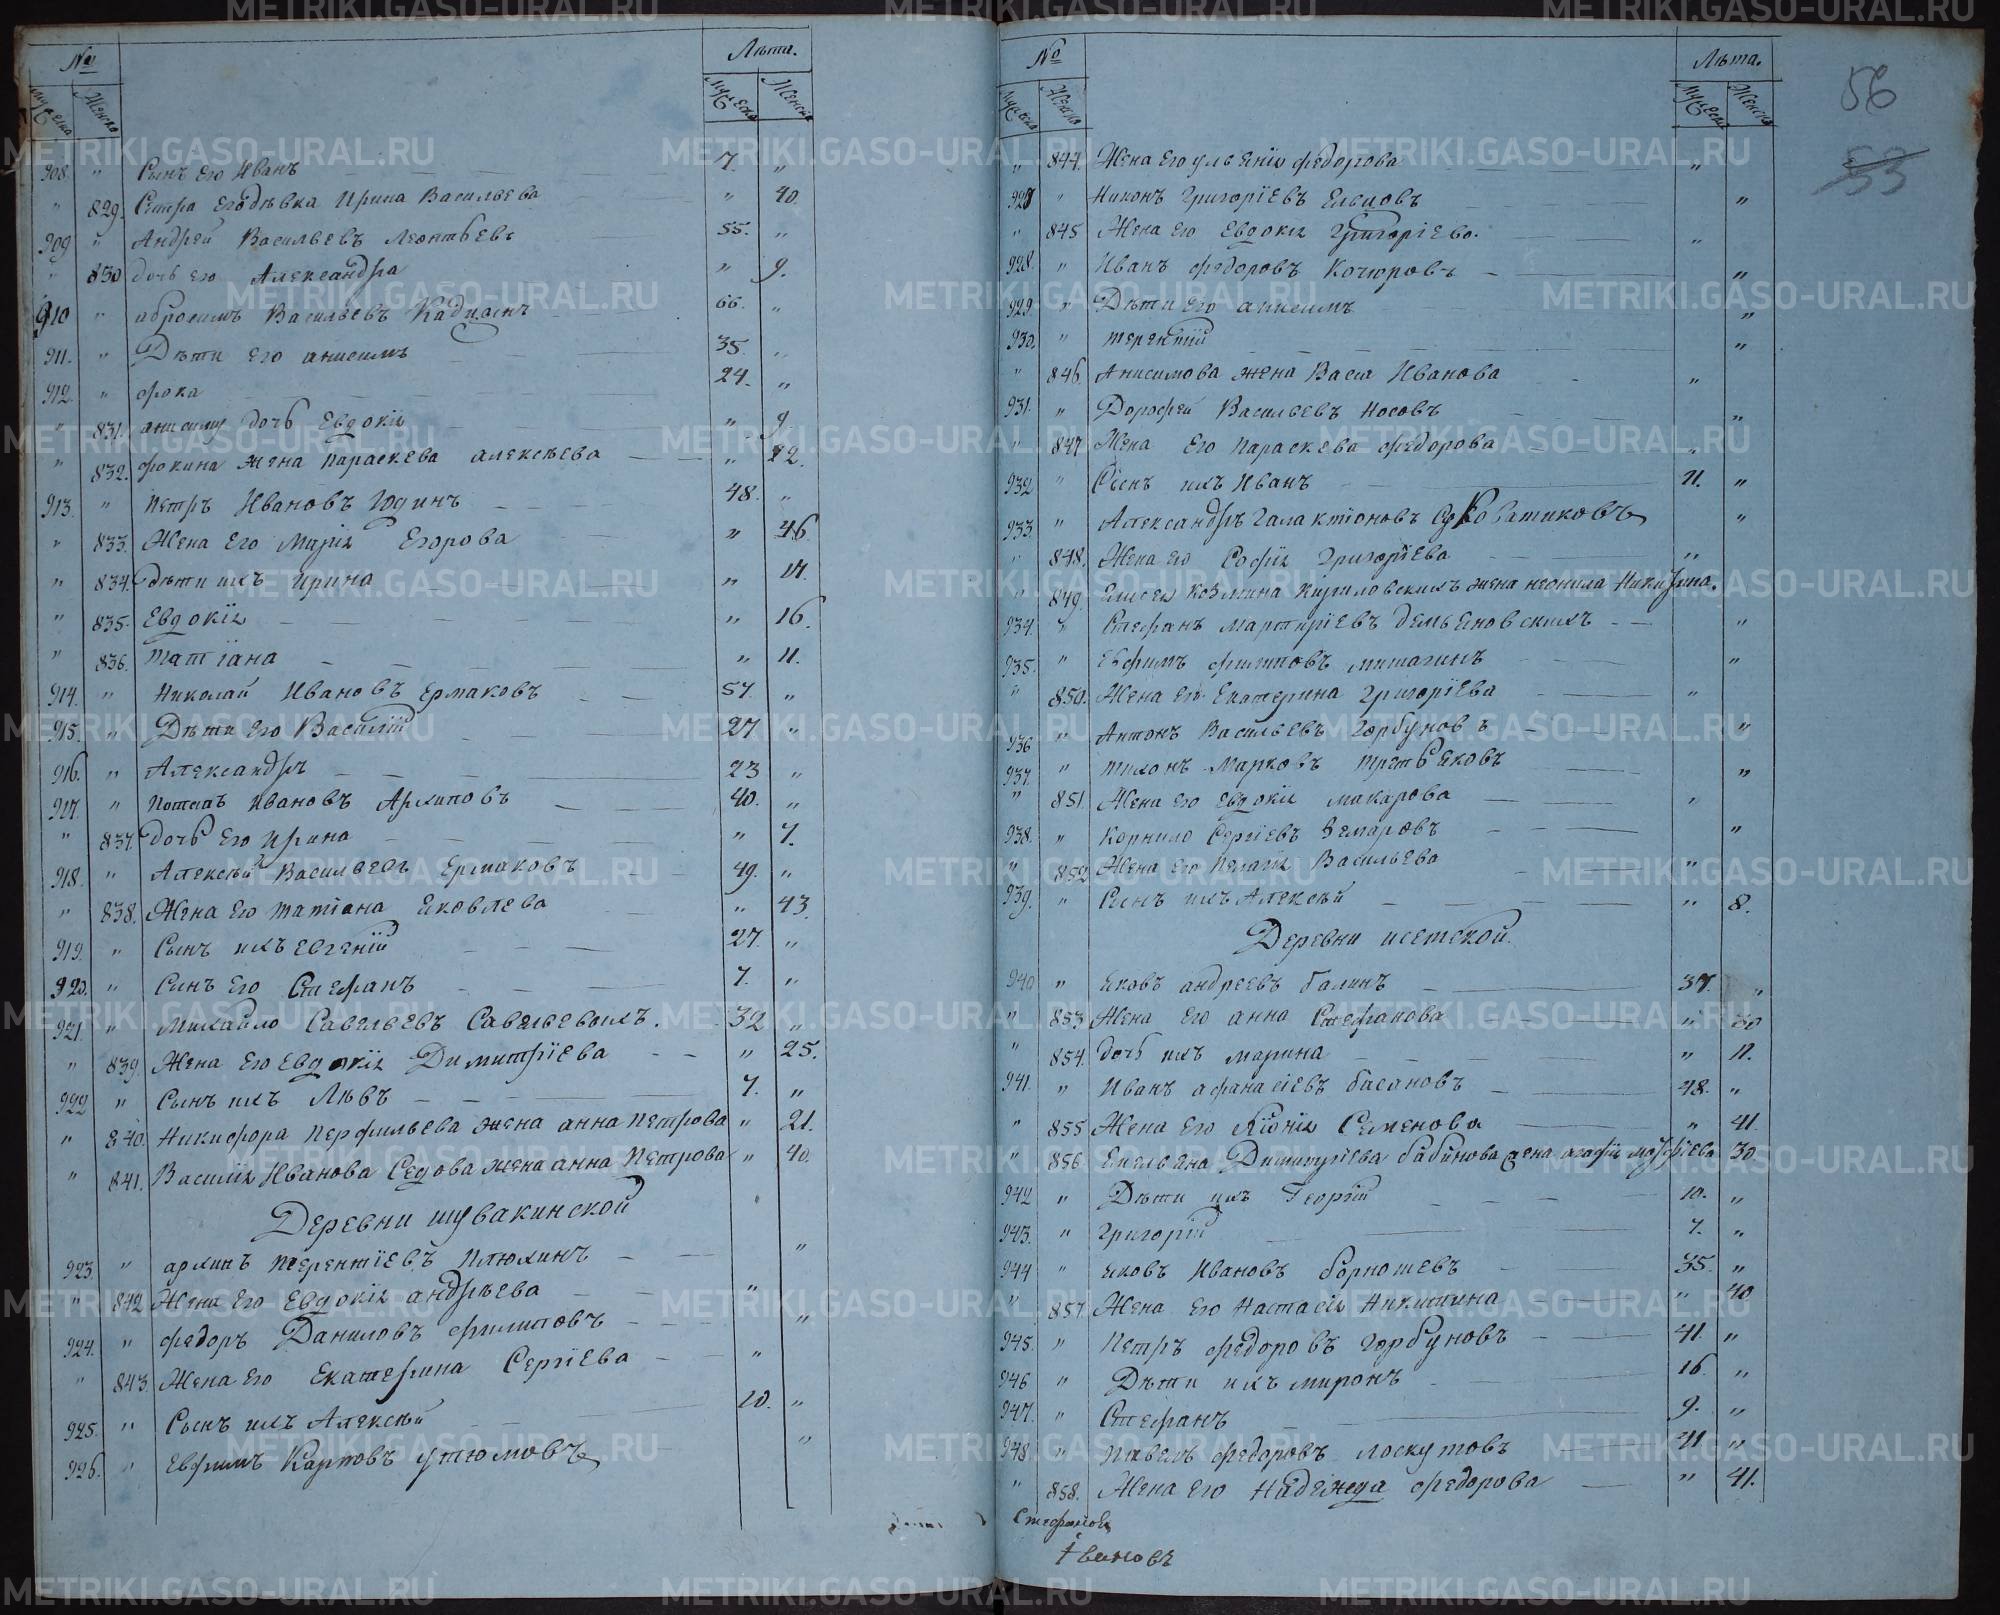 №
Лѣта.
Мужеска
Женска
Мужеска
Женска
908. " Сынъ его Иванъ 7. "
" 829. Сестра его дѣвка Ирина Васильева " 40.
909 " Андрей Васильевъ Леонтьевъ 55. "
" 830 дочь его Александра " 9.
910 " Абросимъ Васильевъ Кадцынъ 66. "
911. " Дѣти его анисимъ 35. "
912. " фока 24. "
" 831. анисиму дочь Евдокія " 9.
" 832. фокина жена параскева алексѣева " 22.
913. " Петръ Ивановъ Юдинъ 48. "
" 833. Жена Его Марія Егорова " 46
" 834. дѣти ихъ Ирина " 17.
" 835. Евдокія " 16.
" 836. Татіана " 11.
914. " Николай Ивановъ Ермаковъ 57. "
915. " Дѣти Его Василій 27 "
916. " Александръ 23 "
917. " Потапъ Ивановъ Архиповъ 40. "
" 837. дочь Его Ирина " 7.
918. " Алексѣй Васильевъ Ермаковъ 49. "
" 838. Жена Его Татіана Яковлева " 43.
919. " Сынъ ихъ Евгеній 27. "
920. " Сынъ Его Стефанъ 7. "
921. " Михайло Савельевъ Савельевыхъ. 32 "
" 839. Жена Его Евдокія Димитріева " 25.
922 " Сынъ ихъ Львъ 7. "
" 840. Никифора Перфильева жена анна Петрова " 21.
" 841. Василія Иванова Седова жена анна Петрова " 40.
Деревни шувакинской
923. " архипъ терентіевъ Плюхинъ "
" 842 Жена Его Евдокія андрѣева "
924. " федоръ Даниловъ филиповъ "
" 843. Жена Его Екатерина Сергіева "
925. " Сынъ ихъ Алексѣй 10. "
926. " Евфимъ Карповъ утюмовъ "
56
53
№
Лѣта.
Мужеска
Женска
Мужеска
Женска
" 844. Жена Его ульянія федорова "
927 " Никонъ Григоріевъ Ельцовъ "
" 845 Жена Его Евдокія Григоріева. "
928. " Иванъ федоровъ Кочуровъ "
929. " Дѣти Его анисимъ "
930. " терентій "
" 846. Анисимова жена Васса Иванова "
931. " Дорофей Васильевъ Носовъ "
" 847 Жена Его Параскева федорова "
932 " Сынъ ихъ Иванъ 11. "
933. " Александръ Галактіоновъ Суковатиковъ "
" 848. Жена его Софія Григоріева "
" 849. Елисея Козмина Кириловскихъ жена неонила Никифора.
934. " Стефанъ Мартиріевъ демьяновскихъ "
935. " Евфимъ филиповъ митагинъ "
" 850. Жена Его Екатерина Григоріева "
936 " Антонъ Васильевъ Горбуновъ "
937. " тихонъ Марковъ третьяковъ "
" 851. Жена Его Евдокія макарова "
938. " Корнило Сергіевъ Земаровъ "
" 852 Жена Его Пелагія Васильева "
939. " Сынъ ихъ Алексѣй " 8.
Деревни исетской.
940 " Яковъ андреевъ балинъ 37. "
" 853. Жена Его анна Стефанова " 30
" 854. дочь ихъ марина " 11.
941. " Иванъ афанасіевъ басановъ 48. "
" 855 Жена Его Хіонія Семенова " 41.
" 856. Емельяна Димитріева бабинова жена агафія 30
942 " Дѣти ихъ Георгій 10. "
943. " Григорій 7. "
944 " Яковъ Ивановъ борношевъ 35. "
" 857. Жена Его Настасія Никитина " 40
945. " Петръ федоровъ Горбуновъ 41. "
946 " Дѣти ихъ миронъ 16. "
947. " Стефанъ 9. "
948. " Павелъ федоровъ лоскутовъ 41 "
" 858. Жена Его Надежда федорова " 41.
Стефановъ
Ивановъ